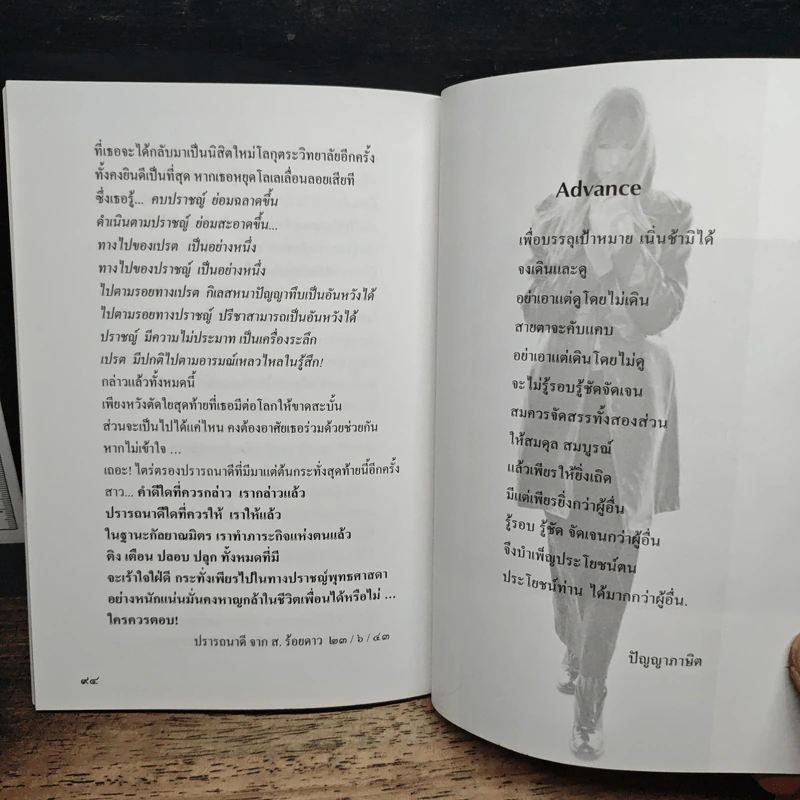 ที่เธอจะได้กลับมาเป็นนิสิตใหม่โลกุตระวิทยาลัยอีกครั้ง
ทั้งคงยินดีเป็นที่สุด หากเธอหยุดโลเลเลื่อนลอยเสียที
ซึ่งเธอรู้... คบปราชญ์ ย่อมฉลาดขึ้น
ดำเนินตามปราชญ์ ย่อมสะอาดขึ้น...
ทางไปของเปรต เป็นอย่างหนึ่ง
ทางไปของปราชญ์ เป็นอย่างหนึ่ง
ไปตามรอยทางเปรต กิเลสหนาปัญญาทึบเป็นอันหวังได้
ไปตามรอยทางปราชญ์ ปรีชาสามารถเป็นอันหวังได้
ปราชญ์ มีความไม่ประมาท เป็นเครื่องระลึก
เปรต มีปกติไปตามอารมณ์เหลวไหลในรู้สึก!
กล่าวแล้วทั้งหมดนี้
เพียงหวังตัดใยสุดท้ายที่เธอมีต่อโลกให้ขาดสะบั้น
ส่วนจะเป็นไปได้แค่ไหน คงต้องอาศัยเธอร่วมด้วยช่วยกัน
หากไม่เข้าใจ ...
เถอะ! ไตร่ตรองปรารถนาดีที่มีมาแต่ต้นกระทั่งสุดท้ายนี้อีกครั้ง
สาว... คำดีใดที่ควรกล่าว เรากล่าวแล้ว
ปรารถนาดีใดที่ควรให้ เราให้แล้ว
ในฐานะกัลยาณมิตร เราทำภาระกิจแห่งตนแล้ว
ติง เตือน ปลอบ ปลุก ทั้งหมดที่มี
จะเร้าใจใฝ่ดี กระทั่งเพียรไปในทางปราชญ์พุทธศาสดา
อย่างหนักแน่นมั่นคงหาญกล้าในชีวิตเพื่อนได้หรือไม่ ...
ใครควรตอบ!
ปรารถนาดี จาก ส. ร้อยดาว ๒๓/๖/๔๓
๙๔
Advance
เพื่อบรรลุเป้าหมาย เนิ่นช้ามิได้
จงเดินและดู
อย่าเอาแต่ดูโดยไม่เดิน
สายตาจะคับแคบ
อย่าเอาแต่เดินโดยไม่ดู
จะไม่รู้รอบรู้ชัดจัดเจน
สมควรจัดสรรทั้งสองส่วน
ให้สมดุล สมบูรณ์
แล้วเพียรให้ยิ่งเถิด
มีแต่เพียรยิ่งกว่าผู้อื่น
รู้รอบ รู้ชัด จัดเจนกว่าผู้อื่น
จึงบำเพ็ญประโยชน์ตน
ประโยชน์ท่าน ได้มากกว่าผู้อื่น.
ปัญญาภาษิต